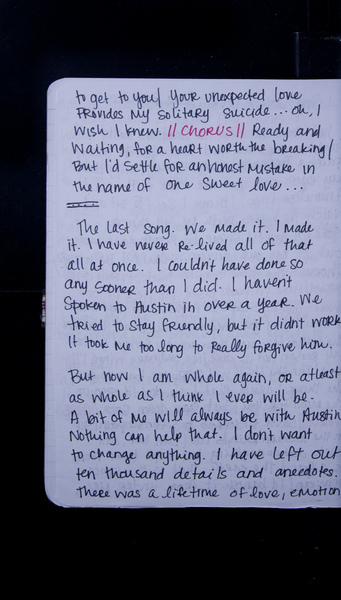 to get to you/ your unexpected love
provides my solitary suicide... oh, I
wish I knew. || CHORUS || Ready and
waiting, for a heart worth the breaking/
But I'd settle for an honest mistake in
the name of one sweet love...
The last song. We made it. I made
it. I have never re-lived all of that
all at once. I couldn't have done so
any sooner than I did. I haven't
spoken to Austin in over a year. We
tried to stay friendly, but it didnt work
It took me too long to really forgive him.
But now I am whole again, or atleast
as whole as I think I ever will be.
A bit of me will always be with Austin
Nothing can help that. I don't want
to change anything. I have left out
ten thousand details and anecdotes.
There was a lifetime of love, emotion